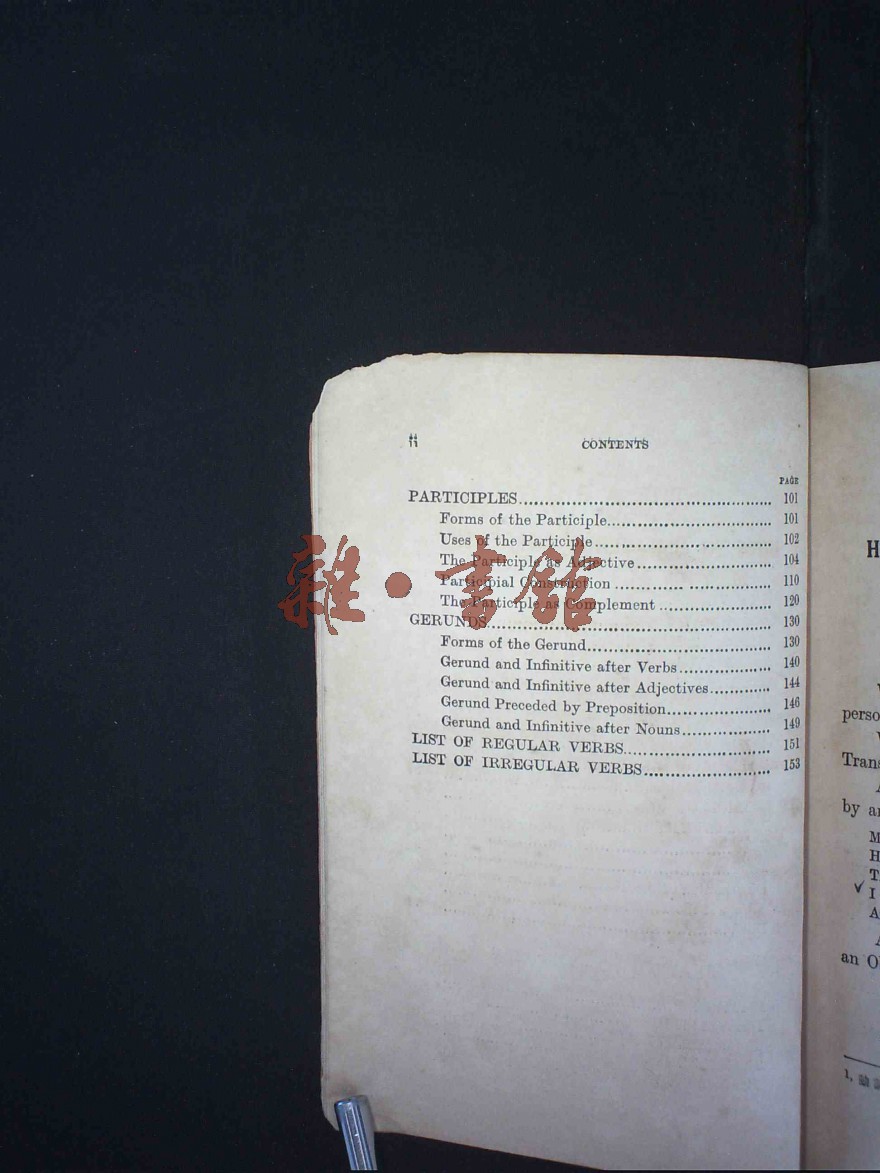 ii
CONTENTS
PAGE
PARTICIPLES 101
Forms of the Participle 101
Uses of the Participle 102
The Participle as Adjective 104
Participial Construction 110
The Participle as Complement 120
GERUNDS 130
Forms of the Gerund 130
Gerund and Infinitive after Verbs 140
Gerund and Infinitive after Adjectives 144
Gerund Preceded by Preposition 146
Gerund and Infinitive after Nouns 149
LIST OF REGULAR VERBS 151
LIST OF IRREGULAR VERBS 153
雜·書館
H
perso
Trans
by a
M
H
T
✓ I
A
A
an O
1,